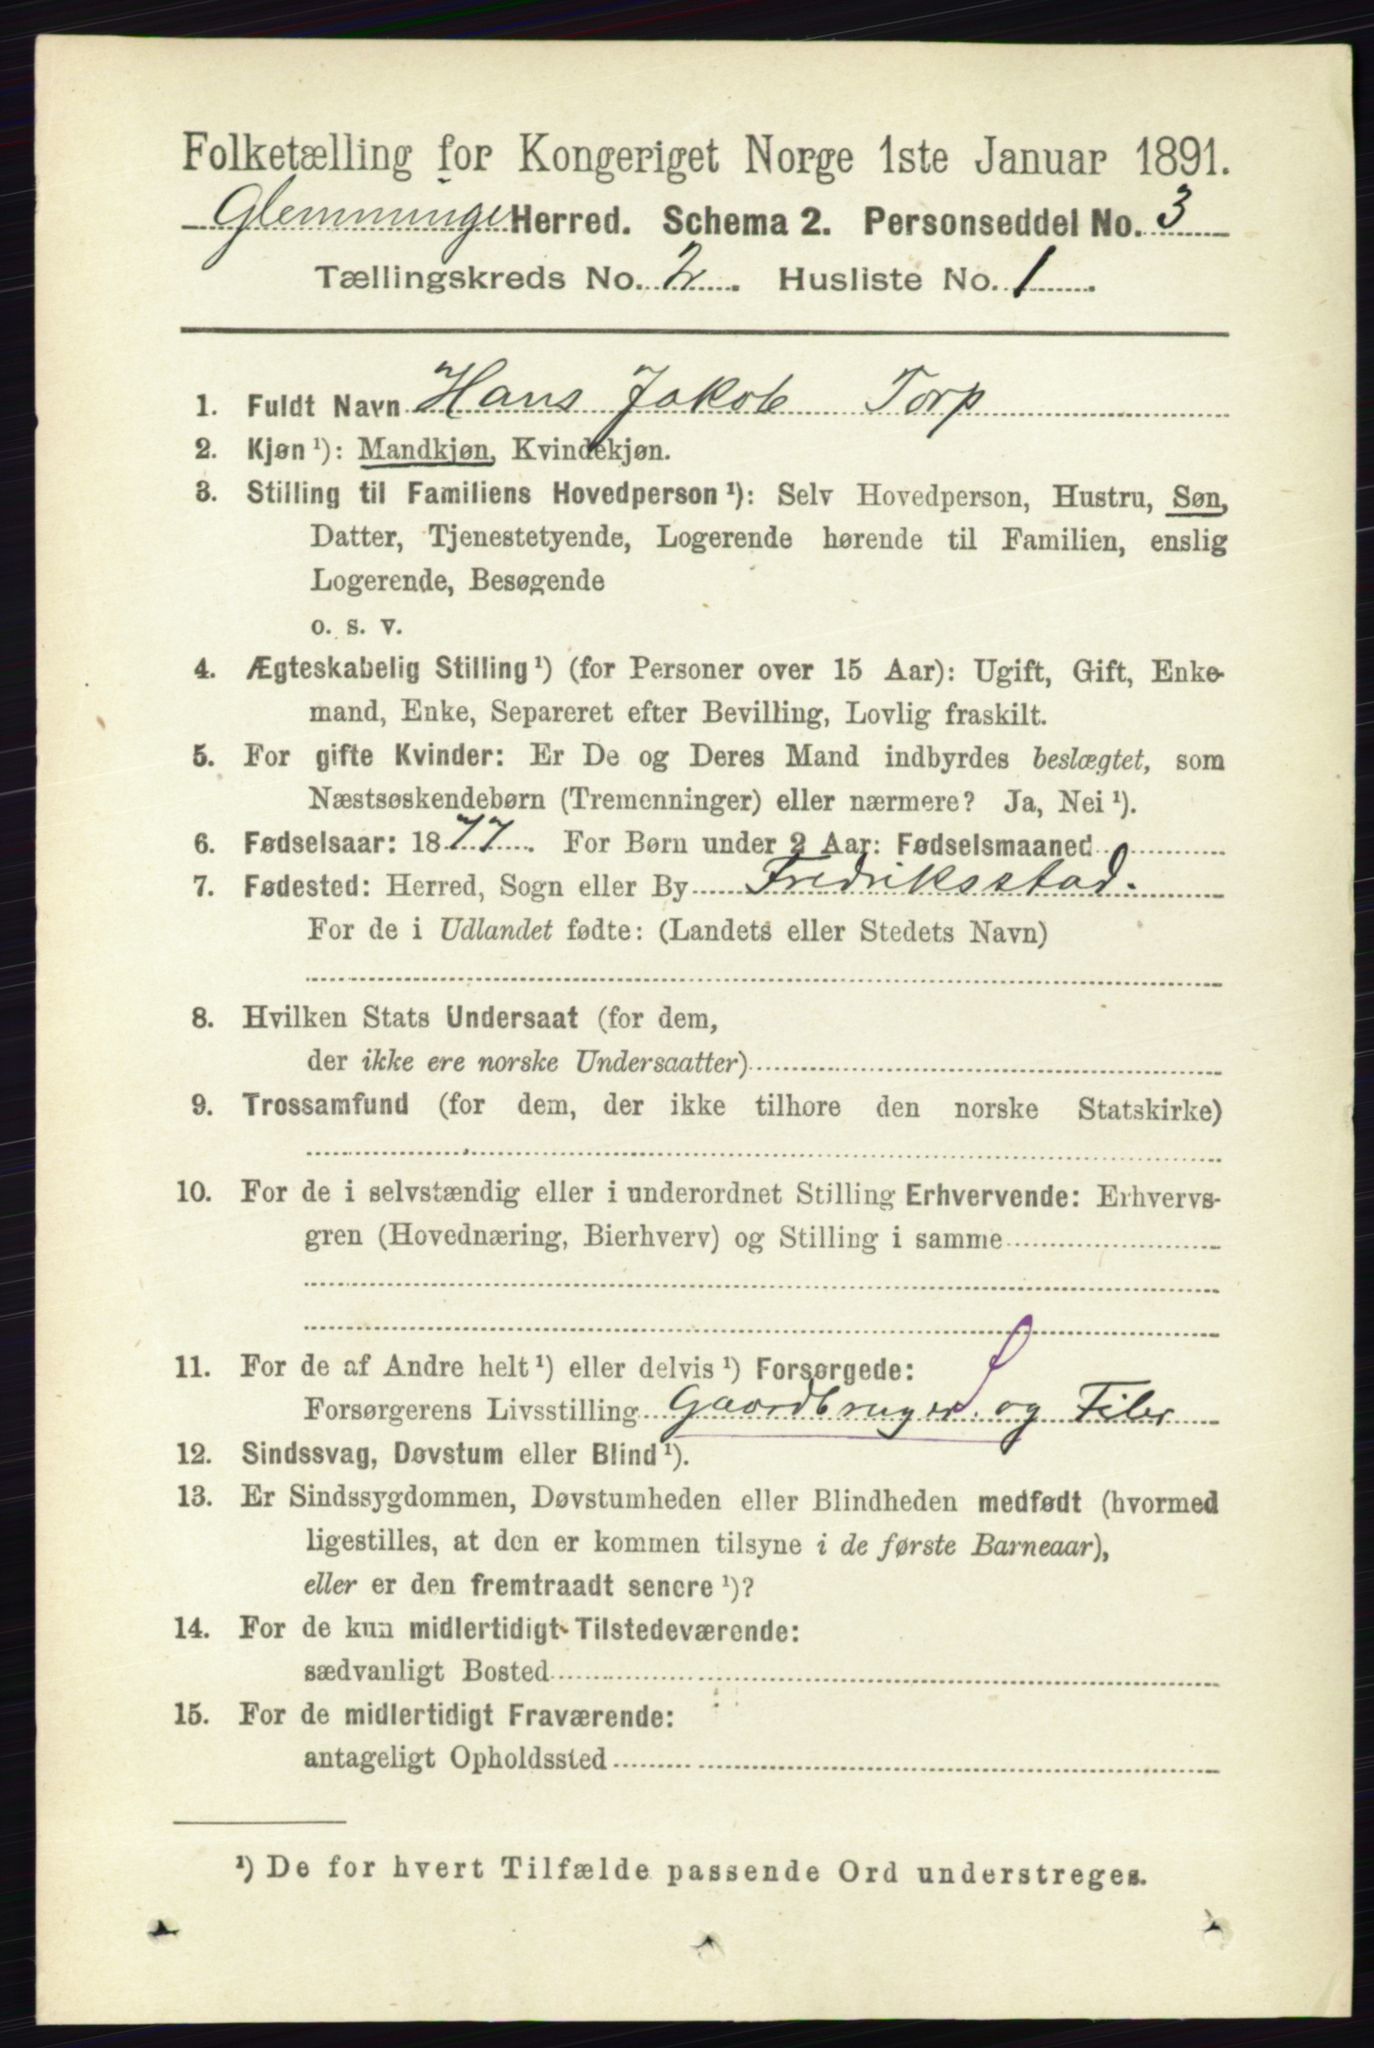 Folketælling for Kongeriget Norge 1ste Januar 1891.
Glemminge Herred. Schema 2. Personseddel No. 3
Tællingskreds No. 2. Husliste No. 1.
1. Fuldt Navn Hans Jakob Torp
2. Kjøn¹): Mandkjøn, Kvindekjøn.
3. Stilling til Familiens Hovedperson¹): Selv Hovedperson, Hustru, Søn,
Datter, Tjenestetyende, Logerende hørende til Familien, enslig
Logerende, Besøgende
o. s. v.
4. Ægteskabelig Stilling¹) (for Personer over 15 Aar): Ugift, Gift, Enke-
mand, Enke, Separeret efter Bevilling, Lovlig fraskilt.
5. For gifte Kvinder: Er De og Deres Mand indbyrdes beslægtet, som
Næstsøskendebørn (Tremenninger) eller nærmere? Ja, Nei¹).
6. Fødselsaar: 1877. For Børn under 2 Aar: Fødselsmaaned
7. Fødested: Herred, Sogn eller By Fredriksstad.
For de i Udlandet fødte: (Landets eller Stedets Navn)
8. Hvilken Stats Undersaat (for dem,
der ikke ere norske Undersaatter)
9. Trossamfund (for dem, der ikke tilhøre den norske Statskirke)
10. For de i selvstændig eller i underordnet Stilling Erhvervende: Erhvervs-
gren (Hovednæring, Bierhverv) og Stilling i samme
11. For de af Andre helt¹) eller delvis¹) Forsørgede:
Forsørgerens Livsstilling Gaardbruger og Filer
12. Sindssvag, Døvstum eller Blind¹).
13. Er Sindssygdommen, Døvstumheden eller Blindheden medfødt (hvormed
ligestilles, at den er kommen tilsyne i de første Barneaar),
eller er den fremtraadt senere¹)?
14. For de kun midlertidigt Tilstedeværende:
sædvanligt Bosted
15. For de midlertidigt Fraværende:
antageligt Opholdssted
¹) De for hvert Tilfælde passende Ord understreges.